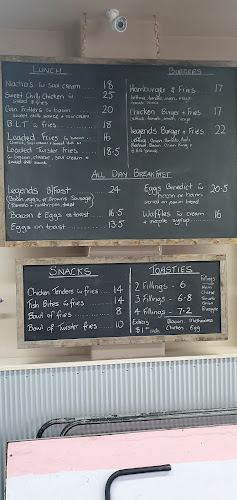 LUNCH
Nacho's & Sour cream 18
Sweet Chilli Chicken 25
Salad & fries
Corn Fritters & bacon 20
Sweet chilli sauce & sour cream
B.L.T & fries 18
Loaded Fries 16
Loaded Twister Fries 18.5
bacon, cheese, sour cream &
sweet chilli sauce
BURGERS
Hamburger & Fries 17
Chicken Burger & Fries 17
Legends Burger & Fries 22
ALL DAY BREAKFAST
Legends B/fast 24
(Bacon, eggs, Browns, Sausage)
Bacon & Eggs on toast 16.5
Eggs on toast 13.5
Eggs Benedict 20.5
bacon or hams
Waffles & cream 16
& maple syrup
SNACKS
Chicken Tenders & fries 14
Fish Bites & fries 14
Bowl of fries 8
Bowl of Twister fries 10
TOASTIES
2 Fillings - 6
3 Fillings - 6.8
4 Fillings - 7.2
Extras
Bacon, Mushrooms
Chicken, Egg
Fillings
Ham
Cheese
Tomato
Onion
Pineapple